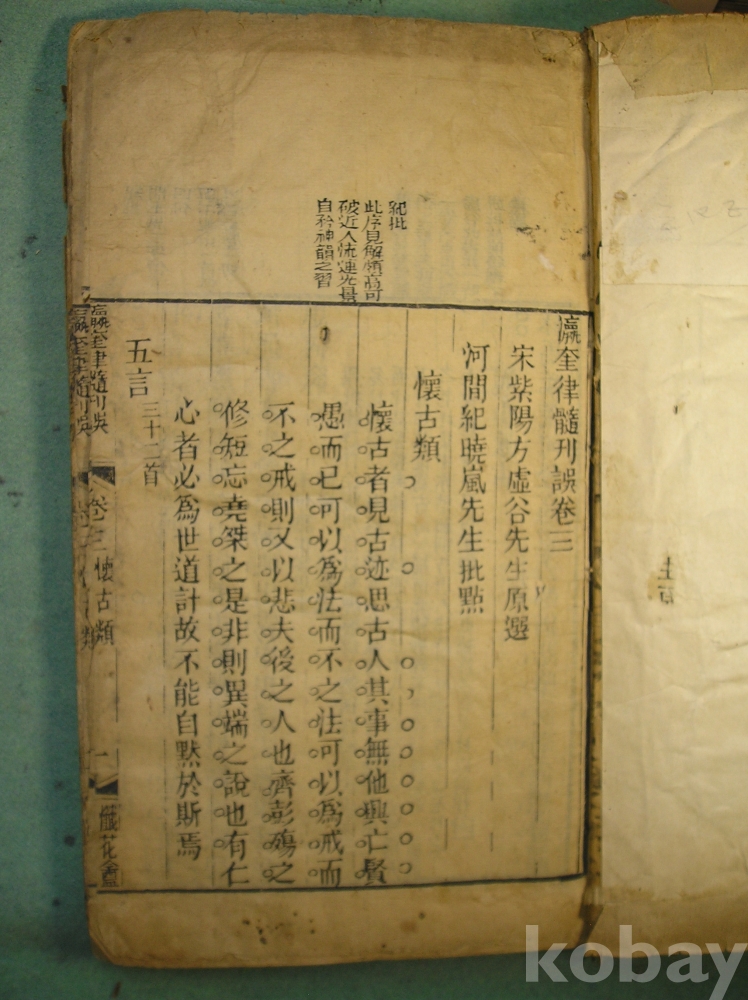 瀛奎律髓刊誤卷三
宋紫陽方虛谷先生原選
河間紀曉嵐先生批點
懷古類
懷古者見古迹思古人其事無他興亡賢
愚而已可以爲法而不之法可以爲戒而
不之戒則又以悲夫後之人也齊彭殤之
修短忘堯桀之是非則異端之說也有仁
心者必爲世道計故不能自默於斯焉
五言三十二首
紀批
此序見解頗高可
破近人流連光景
自矜神韻之習
瀛奎律髓刊誤
卷三
懷古類
一
懺花盦
kobay